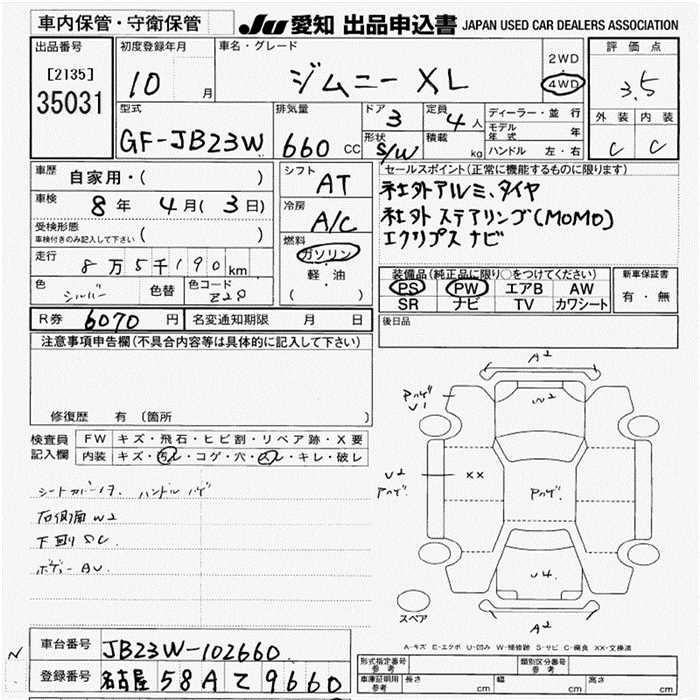 車内保管・守衛保管 JU 愛知 出品申込書 JAPAN USED CAR DEALERS ASSOCIATION
出品番号
[2135]
35031
初度登録年月
10 月
車名・グレード
ジムニー XL
2WD
4WD
評価点
3.5
外装 内装
C C
型式
GF-JB23W
排気量
660 CC
ドア 3
形状 S/W
定員 4 人
積載 kg
ディーラー・並行
モデル年式 年
ハンドル 左・右
車歴
自家用・( )
車検
8 年 4 月 ( 3 日)
受検形態
車検付きのみ記入して下さい ( )
走行
8万5千190 km
色 シルバー 色替 色コード Z2S
シフト
AT
冷房
A/C
燃料
ガソリン
軽・油
( )
セールスポイント(正常に機能するものに限ります)
社外アルミ、タイヤ
社外ステアリング(MOMO)
エクリプスナビ
装備品(純正品に限り○をつけてください)
PS PW エアB AW
SR ナビ TV カワシート
新車保証書
有・無
R券 6070 円 名変通知期限 月 日
後日品
注意事項申告欄(不具合内容等は具体的に記入して下さい)
修復歴 有(箇所 )
検査員記入欄
FW キズ・飛石・ヒビ割・リペア跡・X要
内装 キズ・汚レ・コゲ・穴・スレ・キレ・破レ
シートカバー ハンドルハゲ
右側面W2
下廻りSC
ボデーAU
A2
W2
Pハゲ
U1
U2
アハゲ
XX
Pハゲ
U4
A2
スペア
A-キズ E-エクボ U-凹み W-補修跡 S-サビ C-腐食 XX-交換済
車台番号 JB23W-102660
登録番号 名古屋 58A て 9660
形式指定番号 参考
類別区分番号 参考
車庫証明用 参考 長さ cm 幅 cm 高さ cm